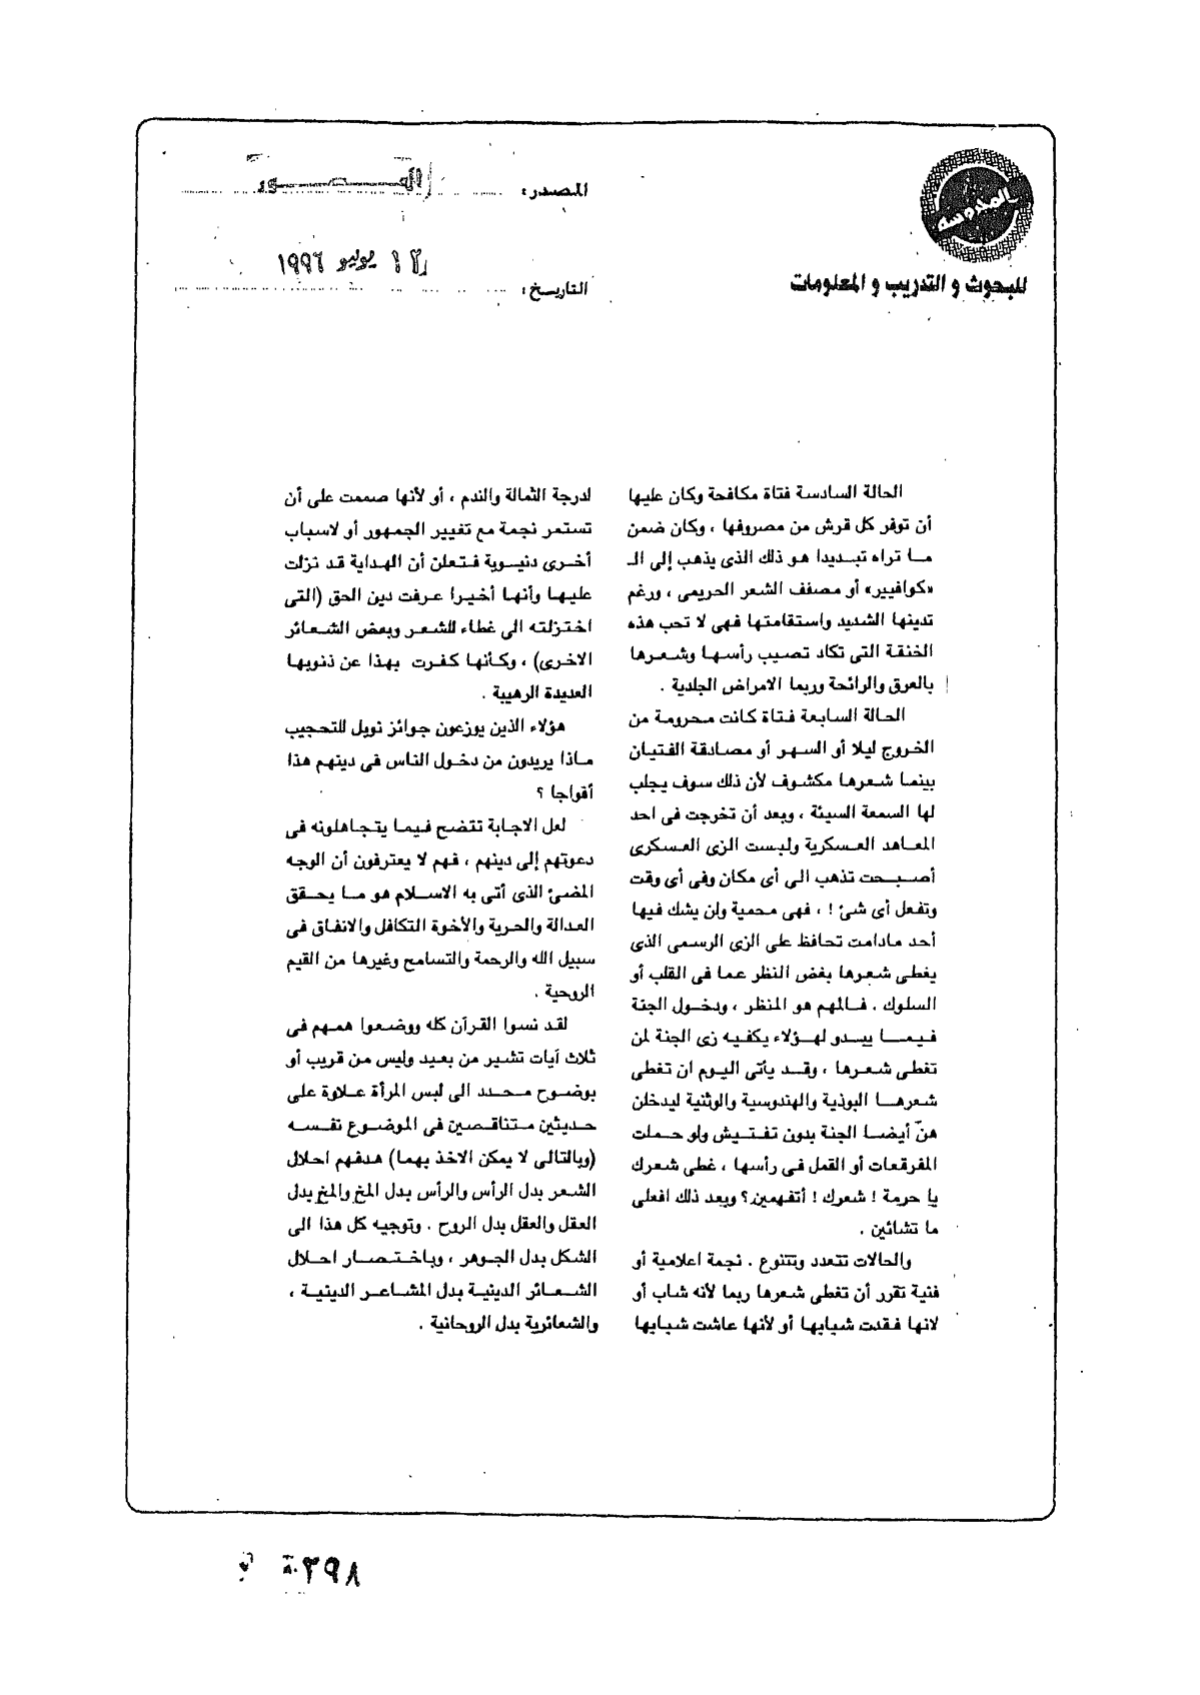 المدروسة
للبحوث و التدريب و المعلومات
المصدر: المصور
التاريخ: ١٢ يوليو ١٩٩٦
الحالة السادسة فتاة مكافحة وكان عليها
أن توفر كل قرش من مصروفها ، وكان ضمن
ما تراه تبديدا هو ذلك الذى يذهب إلى الـ
«كوافيير» أو مصفف الشعر الحريمى ، ورغم
تدينها الشديد واستقامتها فهى لا تحب هذه
الخنقة التى تكاد تصيب رأسها وشعرها
بالعرق والرائحة وربما الامراض الجلدية .
الحالة السابعة فتاة كانت محرومة من
الخروج ليلا أو السهر أو مصادقة الفتيان
بينما شعرها مكشوف لأن ذلك سوف يجلب
لها السمعة السيئة ، وبعد أن تخرجت فى احد
المعاهد العسكرية ولبست الزى العسكرى
أصبحت تذهب الى أى مكان وفى أى وقت
وتفعل أى شئ ! ، فهى محمية ولن يشك فيها
أحد مادامت تحافظ على الزى الرسمى الذى
يغطى شعرها بغض النظر عما فى القلب أو
السلوك . فالمهم هو المنظر ، ودخول الجنة
فيما يبدو لهؤلاء يكفيه زى الجنة لمن
تغطى شعرها ، وقد يأتى اليوم ان تغطى
شعرها البوذية والهندوسية والوثنية ليدخلن
هنّ أيضا الجنة بدون تفتيش ولو حملت
المفرقعات أو القمل فى رأسها ، غطى شعرك
يا حرمة ! شعرك ! أتفهمين؟ وبعد ذلك افعلى
ما تشائين .
والحالات تتعدد وتتنوع . نجمة اعلامية أو
فنية تقرر أن تغطى شعرها ربما لأنه شاب أو
لانها فقدت شبابها أو لأنها عاشت شبابها
لدرجة الثمالة والندم ، أو لأنها صممت على أن
تستمر نجمة مع تغيير الجمهور أو لاسباب
أخرى دنيوية فتعلن أن الهداية قد نزلت
عليها وأنها أخيرا عرفت دين الحق (التى
اختزلته الى غطاء للشعر وبعض الشعائر
الاخرى) ، وكأنها كفرت بهذا عن ذنوبها
العديدة الرهيبة .
هؤلاء الذين يوزعون جوائز نوبل للتحجيب
ماذا يريدون من دخول الناس فى دينهم هذا
أفواجا ؟
لعل الاجابة تتضح فيما يتجاهلونه فى
دعوتهم إلى دينهم ، فهم لا يعترفون أن الوجه
المضئ الذى أتى به الاسلام هو ما يحقق
العدالة والحرية والأخوة التكافل والانفاق فى
سبيل الله والرحمة والتسامح وغيرها من القيم
الروحية .
لقد نسوا القرآن كله ووضعوا همهم فى
ثلاث آيات تشير من بعيد وليس من قريب أو
بوضوح محدد الى لبس المرأة علاوة على
حديثين متناقصين فى الموضوع نفسه
(وبالتالى لا يمكن الاخذ بهما) هدفهم احلال
الشعر بدل الرأس والرأس بدل المخ والمخ بدل
العقل والعقل بدل الروح . وتوجيه كل هذا الى
الشكل بدل الجوهر ، وباختصار احلال
الشعائر الدينية بدل المشاعر الدينية ،
والشعائرية بدل الروحانية .